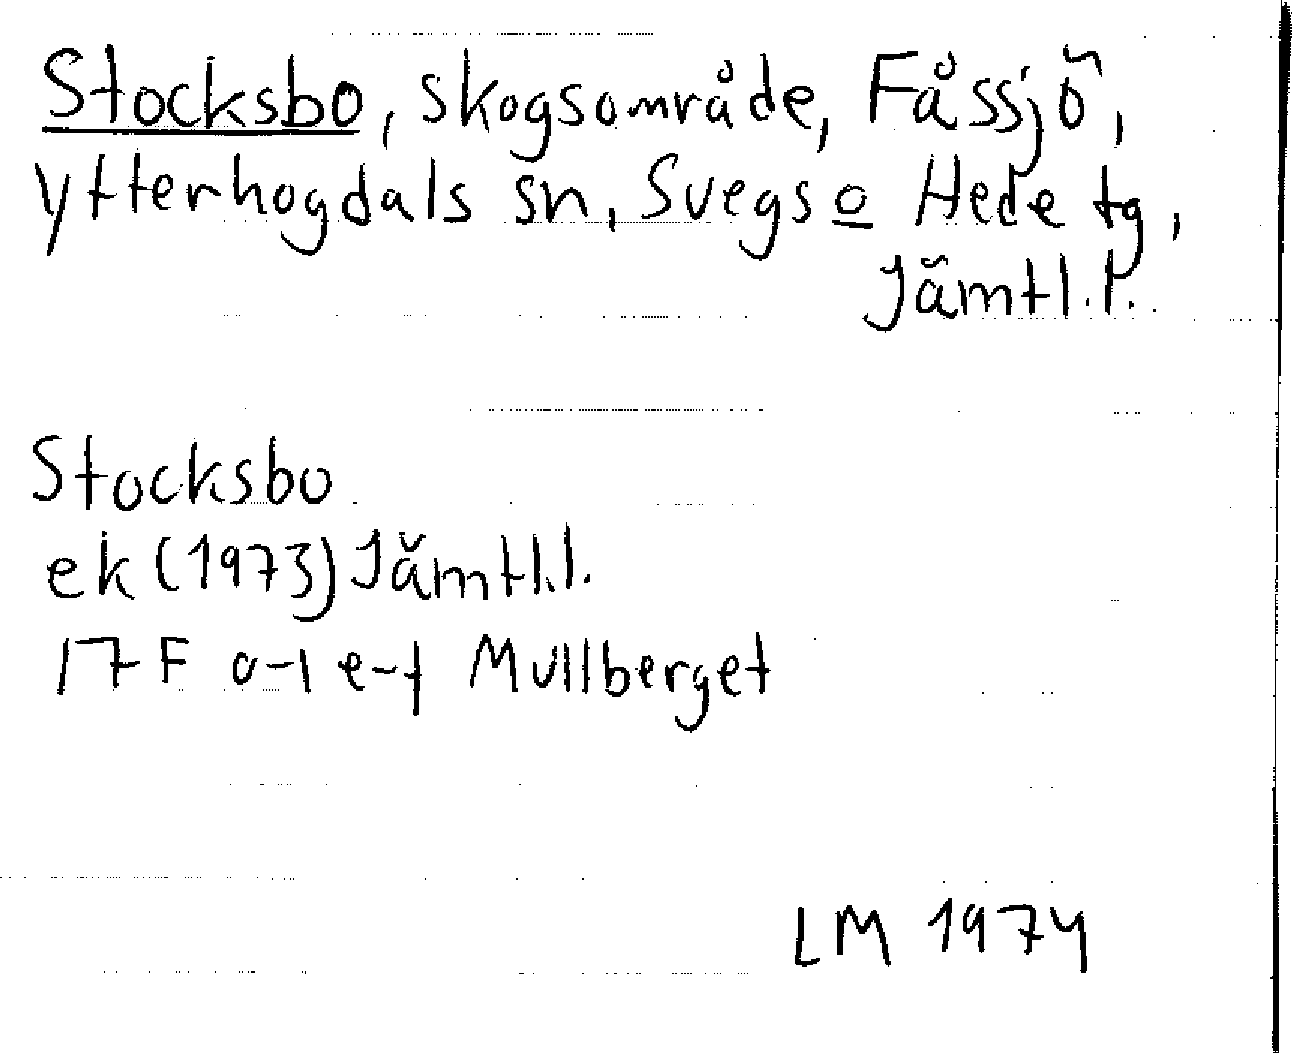 Stocksbo, skogsområde, Fåssjö,
Ytterhogdals sn, Svegs o Hede tg,
Jämtl.l.
Stocksbo
ek (1973) Jämtl.l.
17 F 0-1 e-f Mullberget
LM 1974